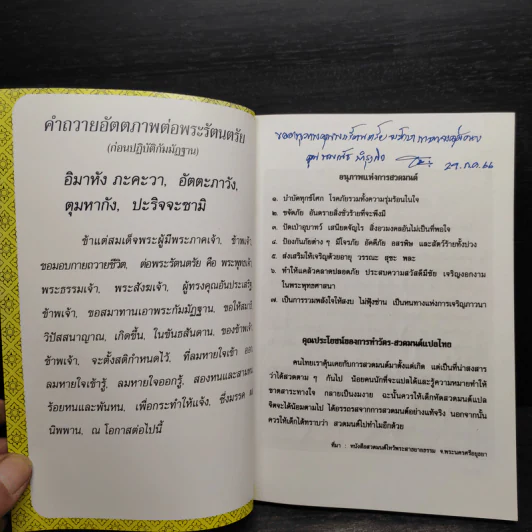 คำถวายอัตตภาพต่อพระรัตนตรัย
(ก่อนปฏิบัติกัมมัฏฐาน)
อิมาหัง ภะคะวา, อัตตะภาวัง,
ตุมหากัง, ปะริจจะชามิ
ข้าแต่สมเด็จพระผู้มีพระภาคเจ้า, ข้าพเจ้า,
ขอมอบกายถวายชีวิต, ต่อพระรัตนตรัย คือ พระพุทธเจ้า,
พระธรรมเจ้า, พระสังฆเจ้า, ผู้ทรงคุณอันประเสริฐ
ข้าพเจ้า, ขอสมาทานเอาพระกัมมัฏฐาน, ขอให้สมาธิ
วิปัสสนาญาณ, เกิดขึ้น, ในขันธสันดาน, ของข้าพเจ้า
ข้าพเจ้า, จะตั้งสติกำหนดไว้, ที่ลมหายใจเข้า ออก
ลมหายใจเข้ารู้, ลมหายใจออกรู้, สองหนและสามหน
ร้อยหนและพันหน, เพื่อกระทำให้แจ้ง, ซึ่งมรรค ผล
นิพพาน, ณ โอกาสต่อไปนี้
๒๑.ก.ค.๖๖
อนุภาพแห่งการสวดมนต์
๑. บำบัดทุกข์โศก โรคภัยรวมทั้งความรุ่มร้อนในใจ
๒. ขจัดภัย อันตรายสิ่งชั่วร้ายที่จะพึงมี
๓. ปัดเป่าอุบาทว์ เสนียดจัญไร สิ่งอวมงคลอันไม่เป็นที่พอใจ
๔. ป้องกันภัยต่าง ๆ มีโจรภัย อัคคีภัย อสรพิษ และสัตว์ร้ายทั้งปวง
๕. ส่งเสริมให้เจริญด้วยอายุ วรรณะ สุขะ พละ
๖. ทำให้แคล้วคลาดปลอดภัย ประสบความสวัสดีมีชัย เจริญงอกงาม
ในพระพุทธศาสนา
๗. เป็นการรวมพลังใจให้สงบ ไม่ฟุ้งซ่าน เป็นหนทางแห่งการเจริญภาวนา
คุณประโยชน์ของการทำวัตร-สวดมนต์แปลไทย
คนไทยเราคุ้นเคยกับการสวดมนต์มาตั้งแต่เกิด แต่เป็นที่น่าสงสาร
ว่าได้สวดตาม ๆ กันไป น้อยคนนักที่จะแปลได้และรู้ความหมายทำให้
ขาดสาระทางใจ กลายเป็นงมงาย ฉะนั้นควรให้เด็กหัดสวดมนต์แปล
จิตจะได้น้อมตามไป ได้อรรถรสจากการสวดมนต์อย่างแท้จริง นอกจากนั้น
ควรให้เด็กได้ทราบว่า สวดมนต์ไปทำไมอีกด้วย
ที่มา : หนังสือสวดมนต์ไหว้พระสายยาธรรม จ.พระนครศรีอยุธยา